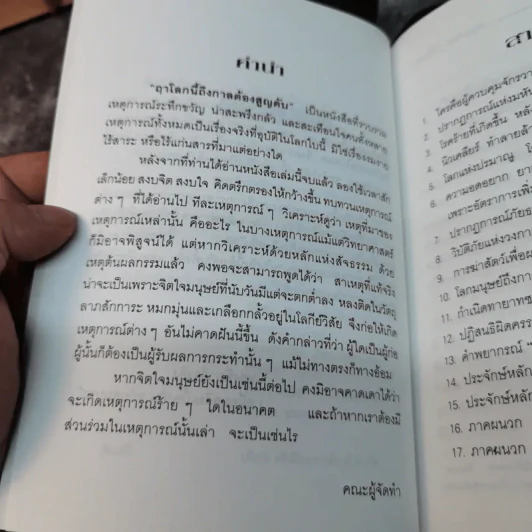 คำนำ
"ฤาโลกนี้ถึงกาลต้องสูญดับ" เป็นหนังสือที่รวบรวม
เหตุการณ์ระทึกขวัญ น่าสะพรึงกลัว และสะเทือนใจคนทั้งหลาย
เหตุการณ์ทั้งหมดเป็นเรื่องจริงที่อุบัติในโลกใบนี้ มิใช่เรื่องงมงาย
ไร้สาระ หรือไร้แก่นสารที่มาแต่อย่างใด
หลังจากที่ท่านได้อ่านหนังสือเล่มนี้จบแล้ว ลองใช้เวลาสัก
เล็กน้อย สงบจิต สงบใจ คิดตรึกตรองให้กว้างขึ้น ทบทวนเหตุการณ์
ต่าง ๆ ที่ได้อ่านไป ทีละเหตุการณ์ ๆ วิเคราะห์ดูว่า เหตุที่มาของ
เหตุการณ์เหล่านั้น คืออะไร ในบางเหตุการณ์แม้แต่วิทยาศาสตร์
ก็มิอาจพิสูจน์ได้ แต่หากวิเคราะห์ด้วยหลักแห่งสัจธรรม ด้วย
เหตุต้นผลกรรมแล้ว คงพอจะสามารถพูดได้ว่า สาเหตุที่แท้จริง
น่าจะเป็นเพราะจิตใจมนุษย์ที่นับวันมีแต่จะตกต่ำลง หลงติดในวัตถุ
ลาภสักการะ หมกมุ่นและเกลือกกลั้วอยู่ในโลกีย์วิสัย จึงก่อให้เกิด
เหตุการณ์ต่าง ๆ อันไม่คาดฝันนี้ขึ้น ดังคำกล่าวที่ว่า ผู้ใดเป็นผู้ก่อ
ผู้นั้นก็ต้องเป็นผู้รับผลการกระทำนั้น ๆ แม้ไม่ทางตรงก็ทางอ้อม
หากจิตใจมนุษย์ยังเป็นเช่นนี้ต่อไป คงมิอาจคาดเดาได้ว่า
จะเกิดเหตุการณ์ร้าย ๆ ใดในอนาคต และถ้าหากเราต้องมี
ส่วนร่วมในเหตุการณ์นั้นเล่า จะเป็นเช่นไร
คณะผู้จัดทำ
สา
1. ใครคือผู้ควบคุมจักรวา
2. ปรากฏการณ์แห่งมหัน
3. โรคร้ายที่เกิดขึ้น หลั
4. นิวเคลียร์ ทำลายล้
5. โลกแห่งปรมาณู
6. ความอดอยาก ยา
เพราะอัตราการเพิ่
7. ปรากฏการณ์ภัย
8. วิบัติภัยแห่งวงกา
9. การฆ่าสัตว์เพื่อผ
10. โลกมนุษย์ถึงกา
11. กำเนิดทายาทซ
12. ปฏิสนธิผิดครร
13. คำพยากรณ์ "
14. ประจักษ์หลัก
15. ประจักษ์หลัก
16. ภาคผนวก
17. ภาคผนวก